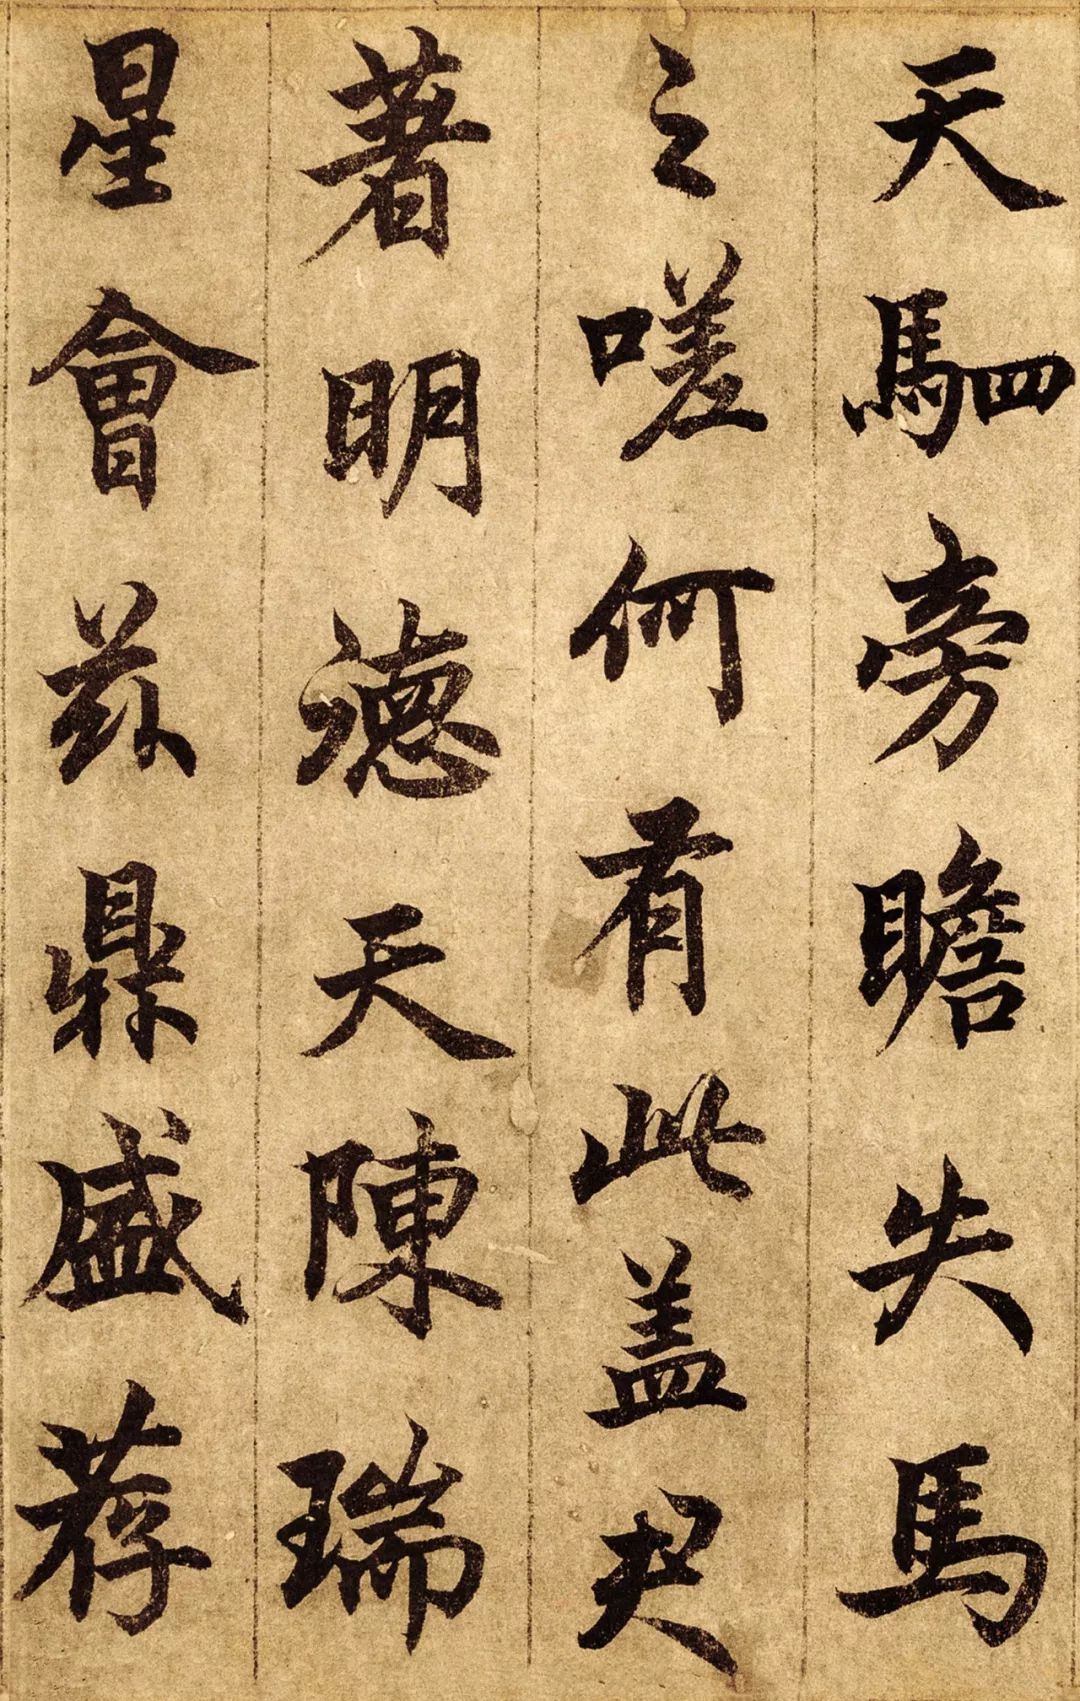 天駟旁瞻失馬
之嗟何有此盖
著明德天陳瑞
星會兹鼎盛荐